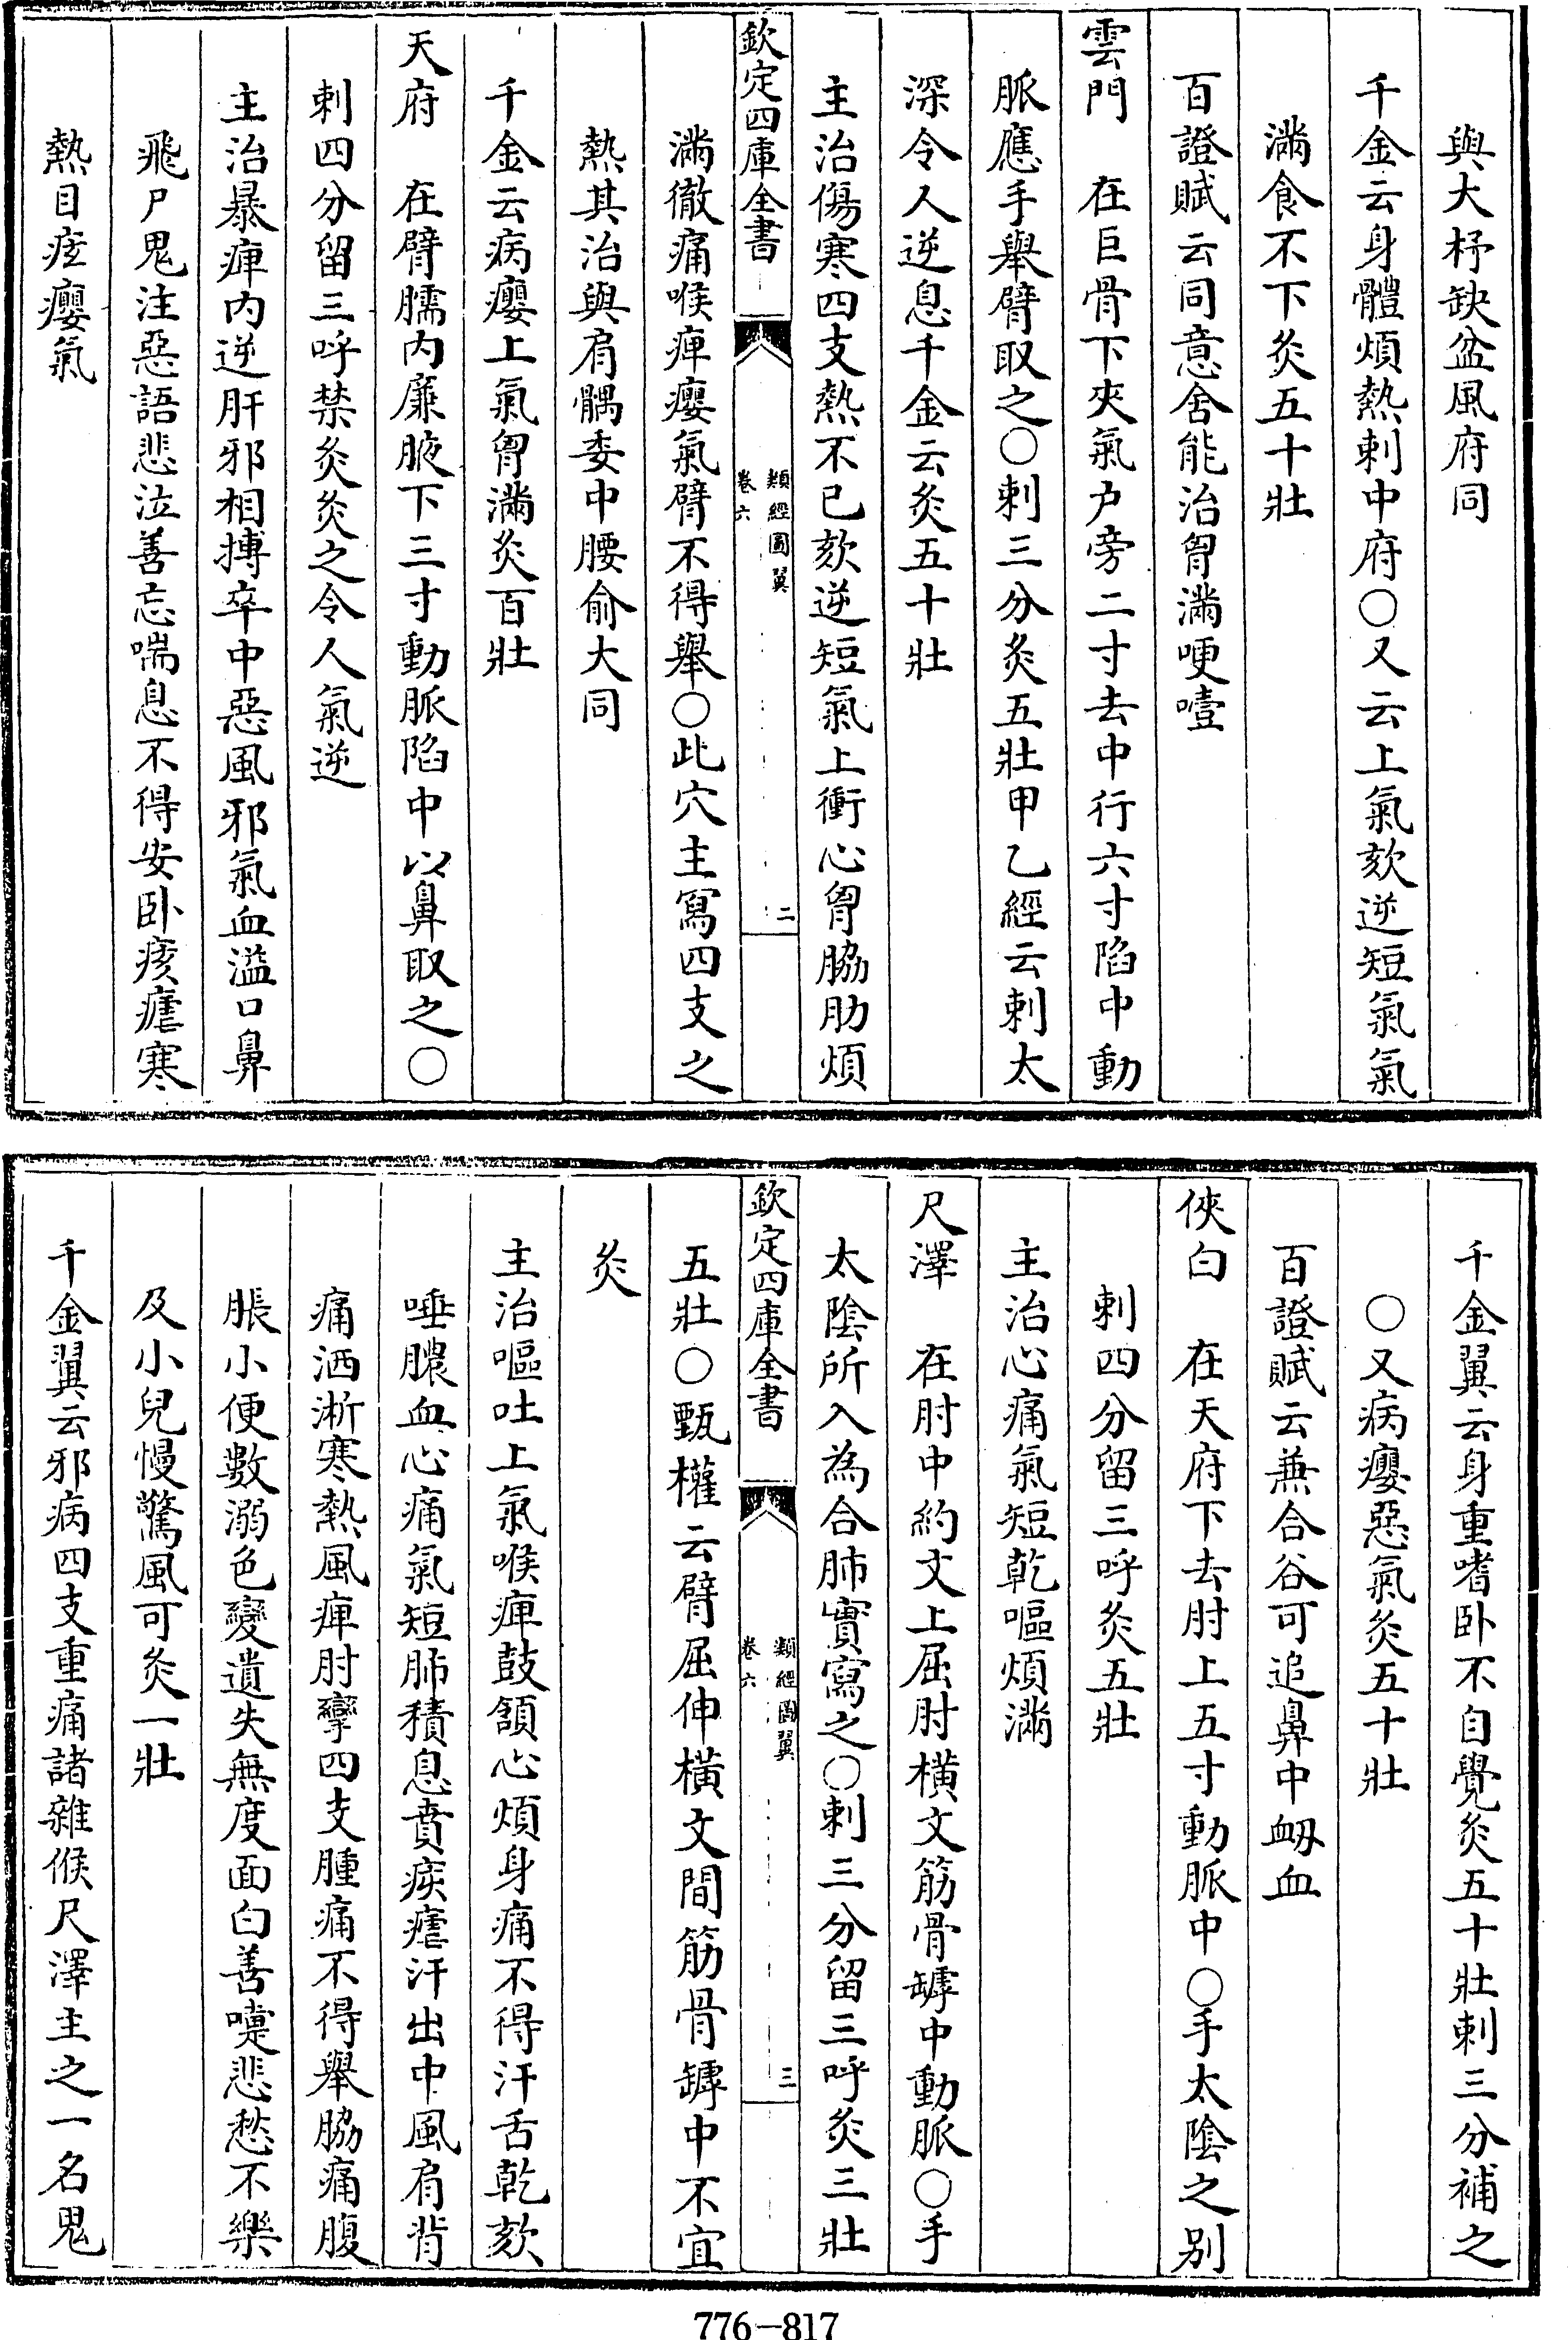 與大杼缺盆風府同
千金云身體煩熱刺中府○又云上氣欬逆短氣氣
滿食不下灸五十壯
百證賦云同意舍能治胷滿哽噎
雲門　在巨骨下夾氣户旁二寸去中行六寸陷中動
脈應手舉臂取之○刺三分灸五壯甲乙經云刺太
深令人逆息千金云灸五十壯
主治傷寒四支熱不已欬逆短氣上衝心胷脇肋煩
欽定四庫全書
類經圖翼
卷六
二
滿徹痛喉痺癭氣臂不得舉○此穴主寫四支之
熱其治與肩髃委中腰俞大同
千金云病癭上氣胷滿灸百壯
天府　在臂臑内廉腋下三寸動脈陷中以鼻取之○
刺四分留三呼禁灸灸之令人氣逆
主治暴痺内逆肝邪相搏卒中惡風邪氣血溢口鼻
飛尸鬼注惡語悲泣善忘喘息不得安卧痎瘧寒
熱目痃癭氣
千金翼云身重嗜卧不自覺灸五十壯刺三分補之
○又病癭惡氣灸五十壯
百證賦云兼合谷可追鼻中衂血
俠白　在天府下去肘上五寸動脈中○手太陰之别
刺四分留三呼灸五壯
主治心痛氣短乾嘔煩滿
尺澤　在肘中約文上屈肘橫文筋骨罅中動脈○手
太陰所入為合肺實寫之○刺三分留三呼灸三壯
欽定四庫全書
類經圖翼
卷六
三
五壯○甄權云臂屈伸橫文間筋骨罅中不宜
灸
主治嘔吐上氣喉痺鼓頷心煩身痛不得汗舌乾欬
唾膿血心痛氣短肺積息賁痎瘧汗出中風肩背
痛洒淅寒熱風痺肘攣四支腫痛不得舉脇痛腹
脹小便數溺色變遺失無度面白善嚏悲愁不樂
及小兒慢驚風可灸一壯
千金翼云邪病四支重痛諸雜候尺澤主之一名鬼
776-817